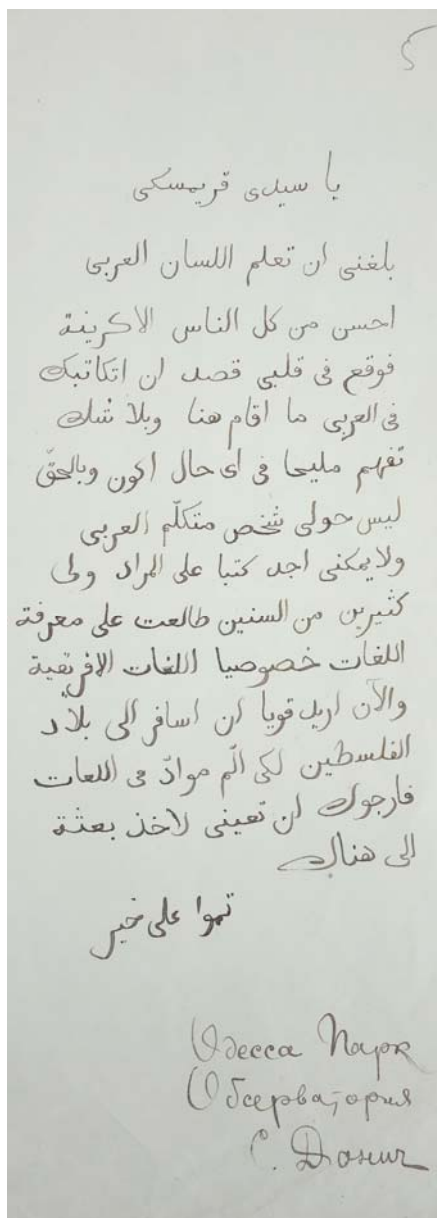 5
يا سيدى قريمسكى
بلغنى ان تعلم اللسان العربى
احسن من كل الناس الاكرينة
فوقع فى قلبى قصد ان اتكاتبك
فى العربى ما اقام هنا وبلا شك
تفهم مليحا فى اى حال اكون وبالحقّ
ليس حولى شخص متكلّم العربى
ولا يمكنى اجد كتبا على المراد ولى
كثيرين من السنين طالعت على معرفة
اللغات خصوصيا اللغات الافريقية
والآن اريد قويا ان اسافر الى بلاد
الفلسطين لكى الّم موادّ فى اللغات
فارجوك ان تعينى لاخذ بعثة
الى هناك
تموا على خير
Одесса Парк
Обсерватория
С. Донич